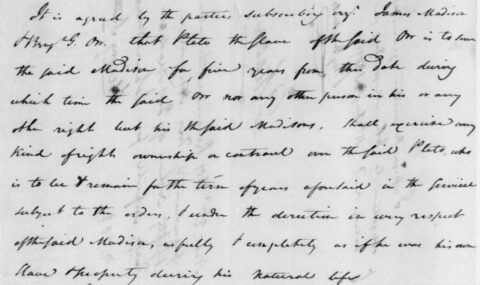 It is agreed by the parties subscribing viz. James Madison
& Benj. G. Orr. that Plato the Slave of the Said Orr is to serve
the said Madison for five years from this Date during
which time the Said Orr nor any other person in his or any
other right but his the Said Madisons. Shall, exercise any
kind of rights ownership or controul over the Said Plato, who
is to be & remain for the term of years aforesaid in the Service
subject to the orders, & under the direction in every respect
of the said Madison, as fully & completely as if he was his own
Slave & property during his natural life